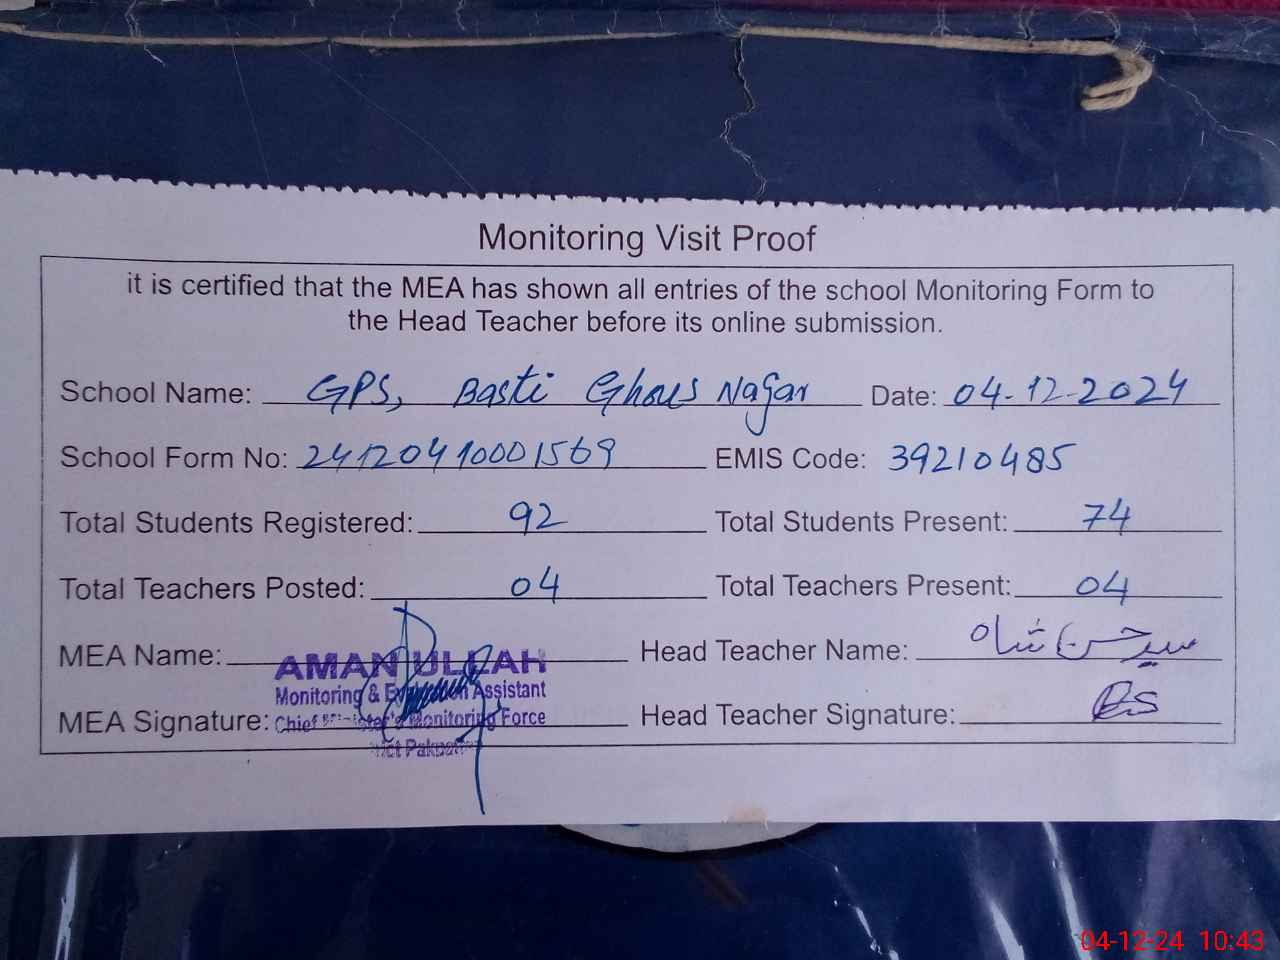 Monitoring Visit Proof
it is certified that the MEA has shown all entries of the school Monitoring Form to
the Head Teacher before its online submission.
School Name: GPS, Basti Ghous Nagar Date: 04-12-2024
School Form No: 24120410001569 EMIS Code: 39210485
Total Students Registered: 92 Total Students Present: 74
Total Teachers Posted: 04 Total Teachers Present: 04
MEA Name: AMAN ULLAH Head Teacher Name: سید حسن شاہ
Monitoring & Evaluation Assistant
MEA Signature: Chief Minister's Monitoring Force Head Teacher Signature:
04-12-24 10:43